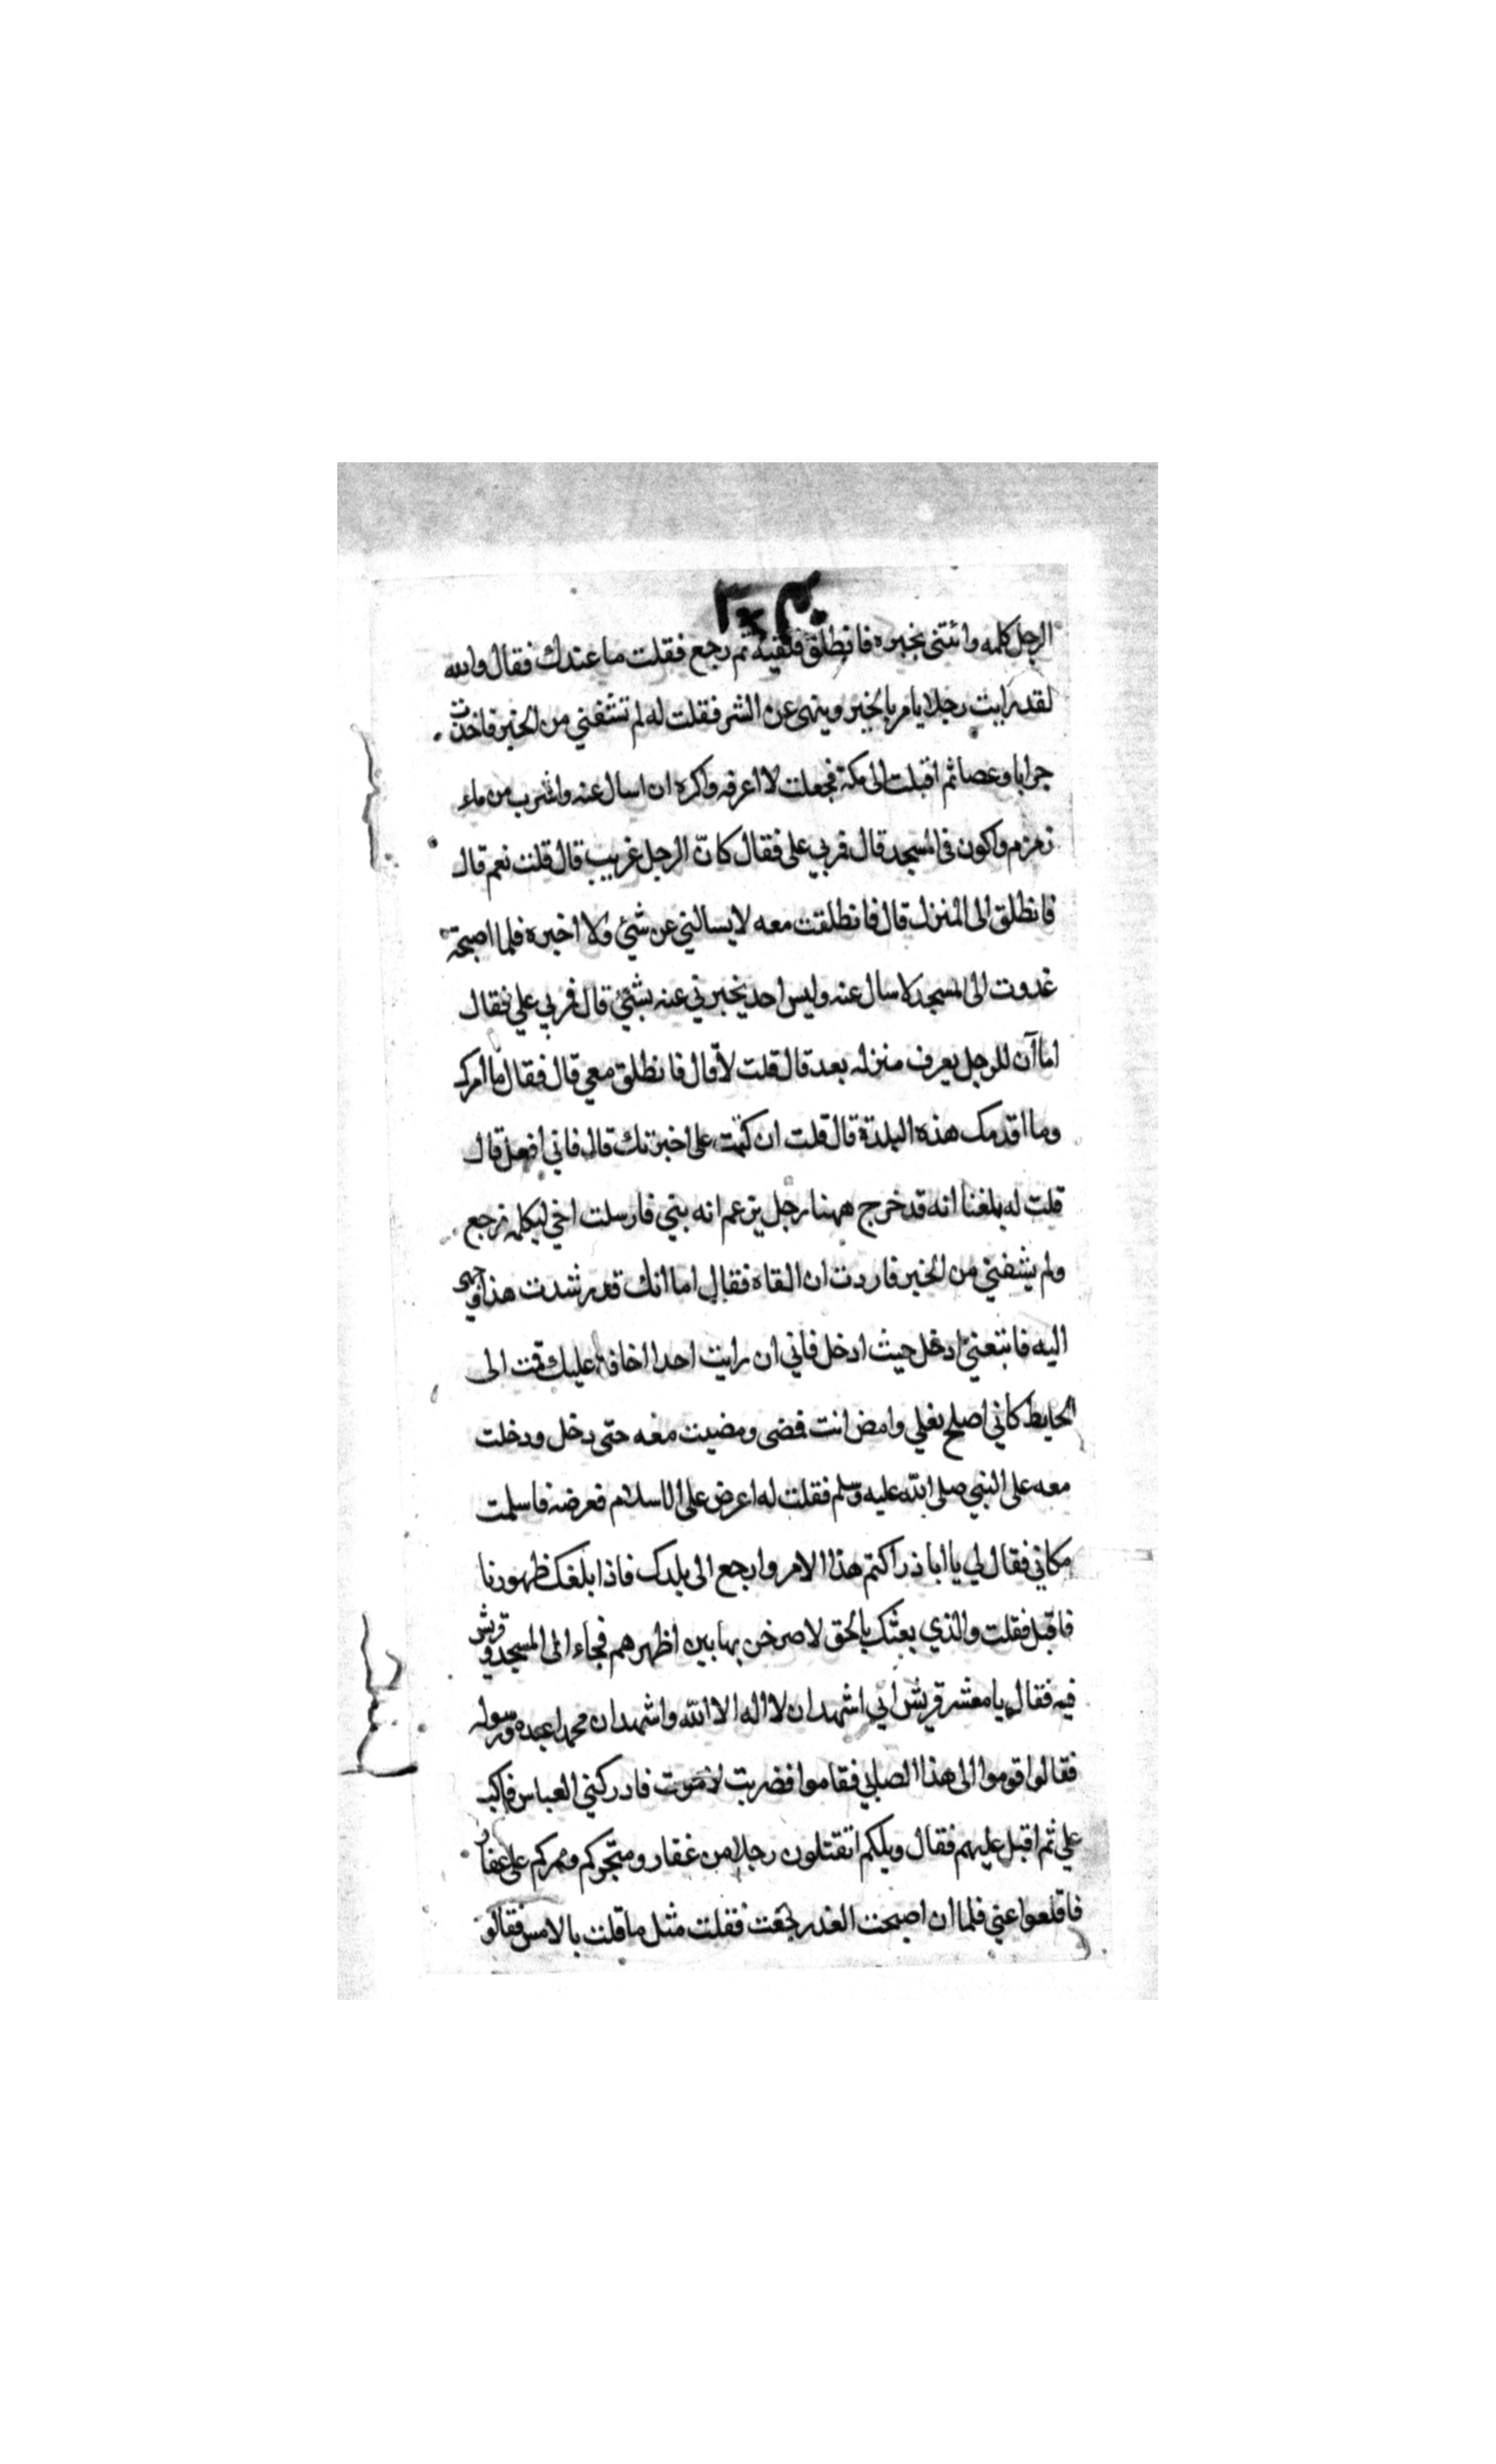 الرجل كلمه وائتنى بخبره فانطلق فلقيه ثم رجع فقلت ما عندك فقال والله
لقد رايت رجلا يامر بالخير وينهى عن الشر فقلت له لم تشفني من الخبر فاخذت
جرابا وعصا ثم اقبلت الى مكة فجعلت لا اعرفه واكره ان اسال عنه واشرب من ماء
زمزم واكون في المسجد قال فمر بي على فقال كانّ الرجل غريب قال قلت نعم قال
فانطلق الى المنزل قال فانطلقت معه لا يسالني عن شئ ولا اخبره فلما اصبحت
غدوت الى المسجد لاسال عنه وليس احد يخبرني عنه بشئ قال فمر بي علي فقال
اما آن للرجل يعرف منزله بعد قال قلت لا قال فانطلق معي قال فقال ما امرك
وما اقدمك هذه البلدة قال قلت ان كتمت على اخبرتك قال فاني افعل قال
قلت له بلغنا انه قد خرج ههنا رجل يزعم انه نبي فارسلت اخي ليكلمه فرجع
ولم يشفني من الخبر فاردت ان القاه فقال اما انك قد رشدت هذا وجهى
اليه فاتبعني ادخل حيث ادخل فاني ان رايت احدا اخافه عليك قمت الى
الحايط كاني اصلح نعلي وامض انت فمضى ومضيت معه حتى دخل ودخلت
معه على النبي صلى الله عليه وسلم فقلت له اعرض على الاسلام فعرضه فاسلمت
مكاني فقال لي يا ابا ذر اكتم هذا الامر وارجع الى بلدك فاذا بلغك ظهورنا
فاقبل فقلت والذي بعثك بالحق لاصرخن بها بين اظهرهم فجاء الى المسجد وقريش
فيه فقال يا معشر قريش اني اشهد ان لا اله الا الله واشهد ان محمدا عبده ورسوله
فقالوا قوموا الى هذا الصابي فقاموا فضربت لاموت فادركني العباس فاكب
علي ثم اقبل عليهم فقال ويلكم اتقتلون رجلا من غفار ومتجركم وممركم على غفار
فاقلعوا عني فلما ان اصبحت الغد رجعت فقلت مثل ما قلت بالامس فقالو